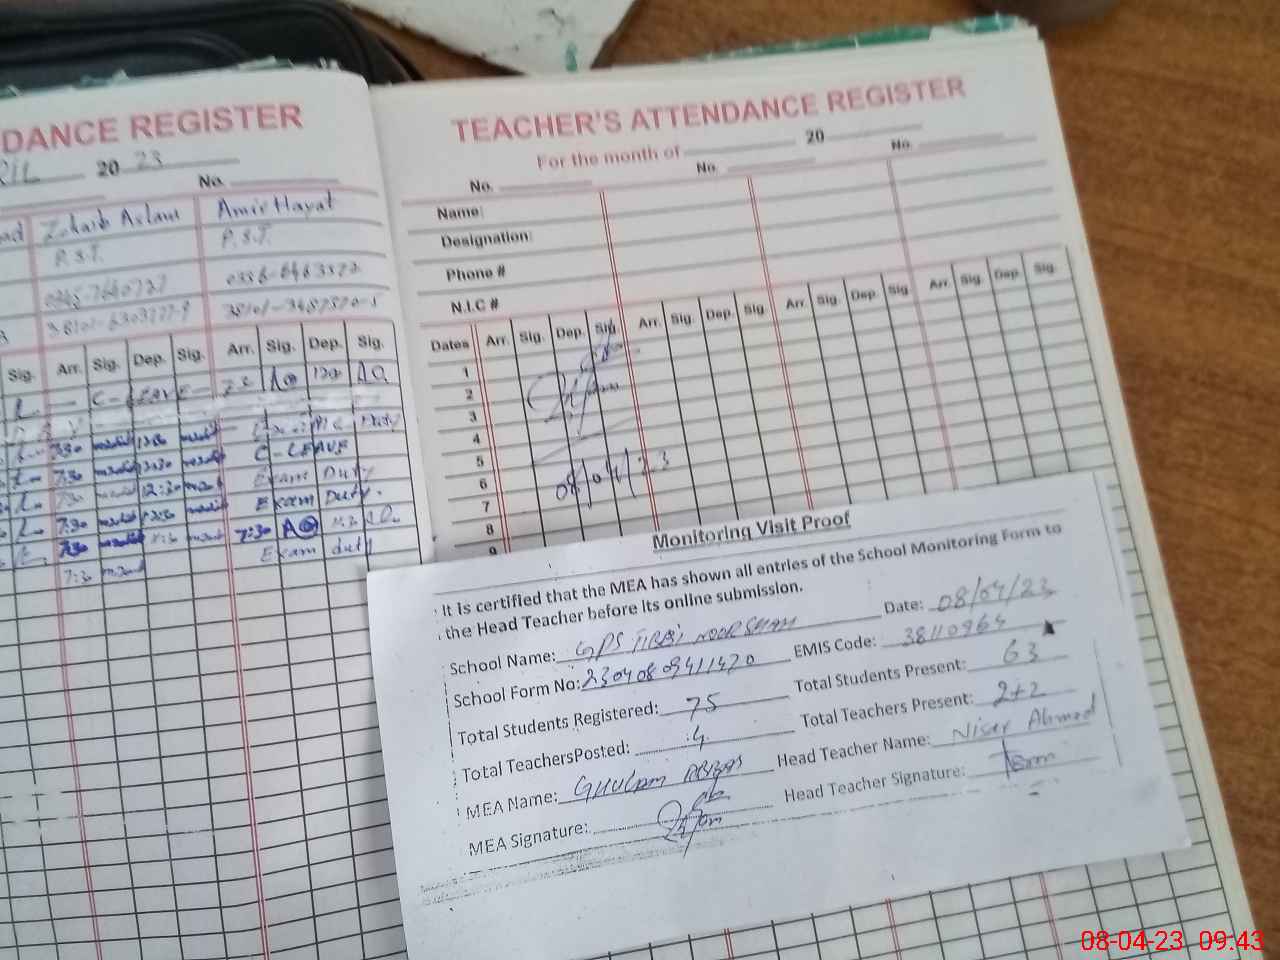 DANCE REGISTER
RIL 20 23
No.
ad Zohaib Aslam Amir Hayat
P.S.T. P.S.T.
0345-7640727 0336-6463372
Sig. Arr. Sig. Dep. Sig. Arr. Sig. Dep. Sig.
C-LEAVE
7:30 12:30 Duty
7:30 12:30 C-LEAVE
7:30 12:30 Exam Duty
7:30 12:30 Exam Duty.
7:30 7:30
7:30 Exam duty
TEACHER'S ATTENDANCE REGISTER
For the month of 20
No. No. No.
Name:
Designation:
Phone #
N.I.C #
Dates Arr. Sig. Dep. Sig. Arr. Sig. Dep. Sig. Arr. Sig. Dep. Sig. Arr. Sig. Dep. Sig.
1
2
3
4
5
6
7
8
9
08/04/23
Monitoring Visit Proof
It is certified that the MEA has shown all entries of the School Monitoring Form to
the Head Teacher before its online submission.
School Name: GPS TIBBI NOOR SHAH Date: 08/04/23
School Form No: 23040809411420 EMIS Code: 38110964
Total Students Registered: 75 Total Students Present: 63
Total TeachersPosted: 4 Total Teachers Present: 2+2
MEA Name: GHULAM ABBAS Head Teacher Name: Nisar Ahmad
MEA Signature: Head Teacher Signature:
08-04-23 09:43